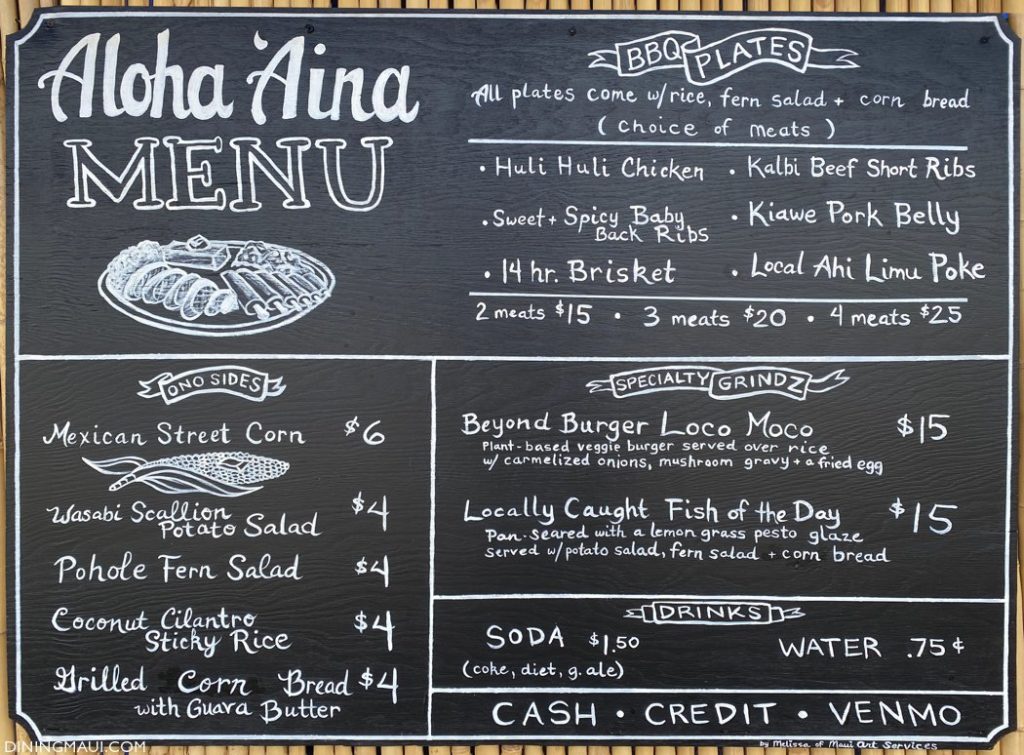 Aloha 'Aina
MENU
BBQ PLATES
All plates come w/rice, fern salad + corn bread
(choice of meats)
• Huli Huli Chicken
• Kalbi Beef Short Ribs
• Sweet + Spicy Baby
Back Ribs
• Kiawe Pork Belly
• 14 hr. Brisket
• Local Ahi Limu Poke
2 meats $15 • 3 meats $20 • 4 meats $25
ONO SIDES
Mexican Street Corn $6
Wasabi Scallion
Potato Salad $4
Pohole Fern Salad $4
Coconut Cilantro
Sticky Rice $4
Grilled Corn Bread $4
with Guava Butter
SPECIALTY GRINDZ
Beyond Burger Loco Moco $15
Plant-based veggie burger served over rice
w/ carmelized onions, mushroom gravy + a fried egg
Locally Caught Fish of the Day $15
Pan-seared with a lemon grass pesto glaze
served w/potato salad, fern salad + corn bread
DRINKS
SODA $1.50
(coke, diet, g. ale)
WATER .75¢
CASH • CREDIT • VENMO
by Melissa of Maui Art Services
DININGMAUI.COM